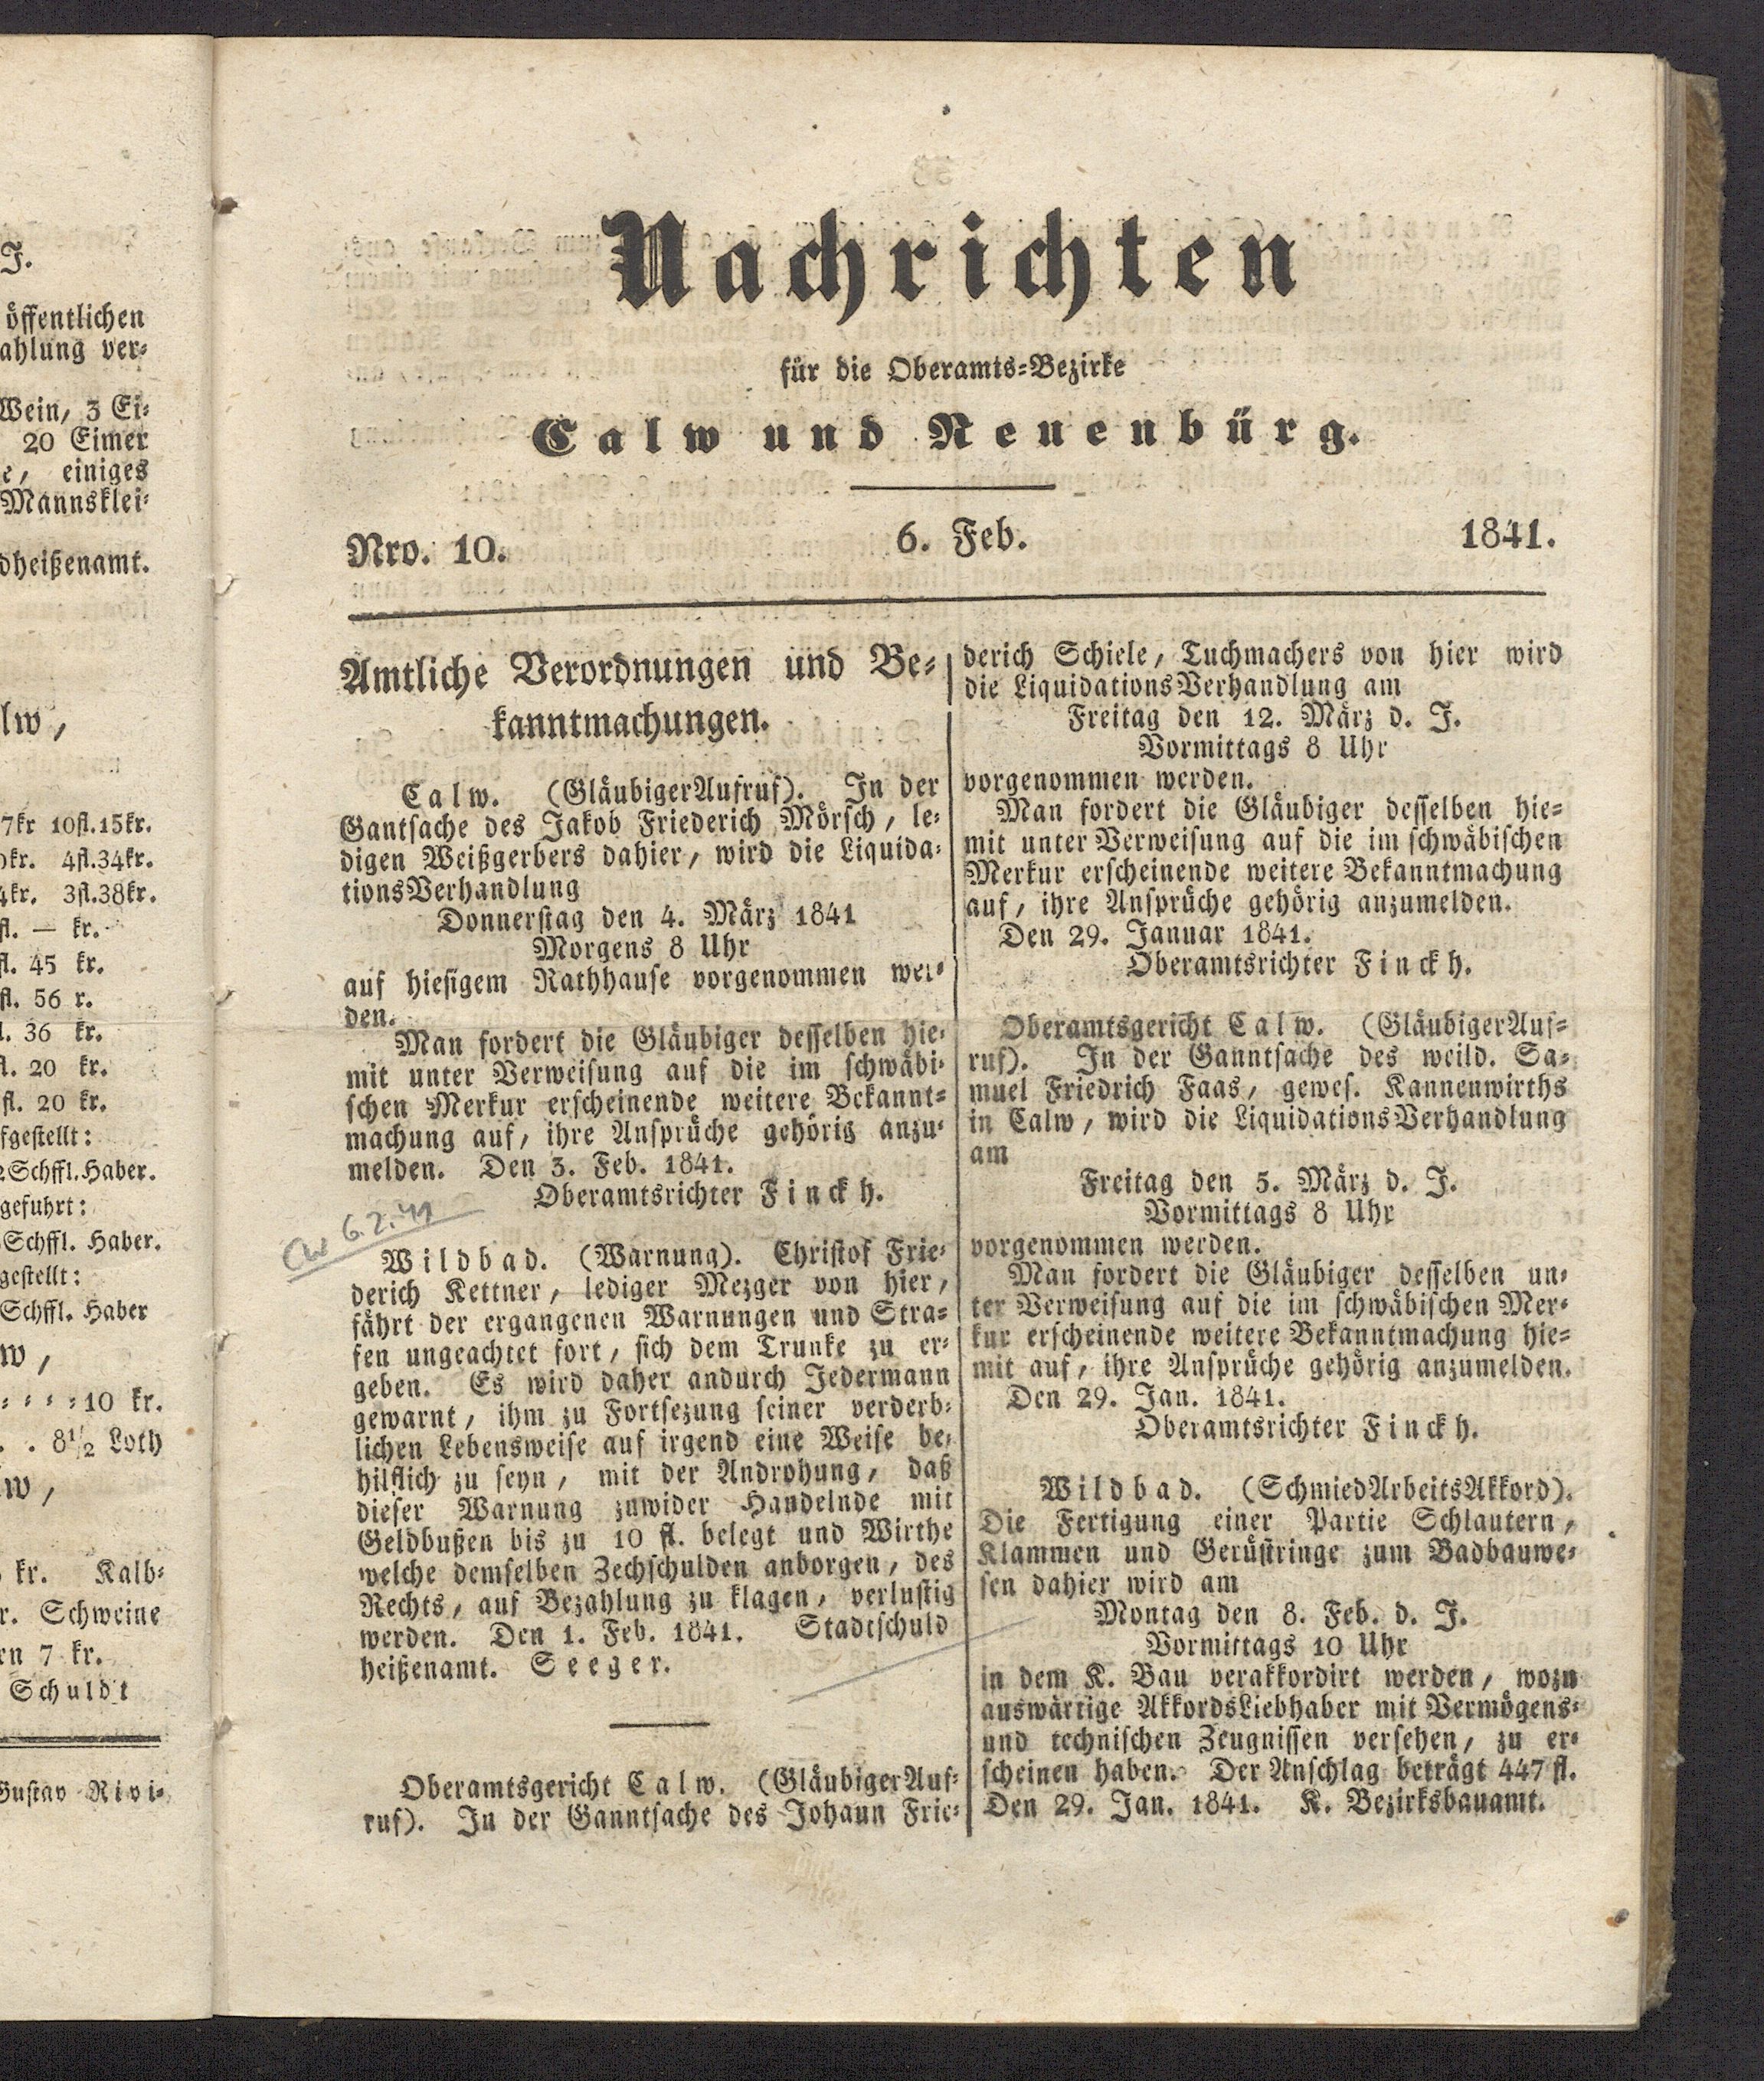 J.
öffentlichen
ahlung ver-
Wein, 3 Ei-
20 Eimer
e, einiges
Mannsklei-
dheißenamt.
lw,
7kr 10fl.15kr.
0kr. 4fl.34kr.
4kr. 3fl.38kr.
fl. — kr.
fl. 45 kr.
fl. 56 r.
l. 36 kr.
fl. 20 kr.
fl. 20 kr.
fgestellt:
2Schffl.Haber.
gefuhrt:
Schffl. Haber.
gestellt:
Schffl. Haber
w,
10 kr.
. . 8 1/2 Loth
w,
kr. Kalb-
r. Schweine
rn 7 kr.
Schuldt
Gustav Rivi-
Nachrichten
für die Oberamts-Bezirke
Calw und Neuenbürg.
Nro. 10. 6. Feb. 1841.
Amtliche Verordnungen und Be-
kanntmachungen.
Calw. (GläubigerAufruf). In der
Gantsache des Jakob Friederich Mörsch, le-
digen Weißgerbers dahier, wird die Liquida-
tionsVerhandlung
Donnerstag den 4. März 1841
Morgens 8 Uhr
auf hiesigem Rathhause vorgenommen wer-
den.
Man fordert die Gläubiger desselben hie-
mit unter Verweisung auf die im schwäbi-
schen Merkur erscheinende weitere Bekannt-
machung auf, ihre Ansprüche gehörig anzu-
melden. Den 3. Feb. 1841.
Oberamtsrichter Finckh.
CW 6.2.41
Wildbad. (Warnung). Christof Frie-
derich Kettner, lediger Mezger von hier,
fährt der ergangenen Warnungen und Stra-
fen ungeachtet fort, sich dem Trunke zu er-
geben. Es wird daher andurch Jedermann
gewarnt, ihm zu Fortsezung seiner verderb-
lichen Lebensweise auf irgend eine Weise be-
hilflich zu seyn, mit der Androhung, daß
dieser Warnung zuwider Handelnde mit
Geldbußen bis zu 10 fl. belegt und Wirthe
welche demselben Zechschulden anborgen, des
Rechts, auf Bezahlung zu klagen, verlustig
werden. Den 1. Feb. 1841. Stadtschuld
heißenamt. Seeger.
Oberamtsgericht Calw. (GläubigerAuf-
ruf). In der Ganntsache des Johann Frie-
derich Schiele, Tuchmachers von hier wird
die LiquidationsVerhandlung am
Freitag den 12. März d. J.
Vormittags 8 Uhr
vorgenommen werden.
Man fordert die Gläubiger desselben hie-
mit unter Verweisung auf die im schwäbischen
Merkur erscheinende weitere Bekanntmachung
auf, ihre Ansprüche gehörig anzumelden.
Den 29. Januar 1841.
Oberamtsrichter Finckh.
Oberamtsgericht Calw. (GläubigerAuf-
ruf). In der Ganntsache des weild. Sa-
muel Friedrich Faas, gewes. Kannenwirths
in Calw, wird die LiquidationsVerhandlung
am
Freitag den 5. März d. J.
Vormittags 8 Uhr
vorgenommen werden.
Man fordert die Gläubiger desselben un-
ter Verweisung auf die im schwäbischen Mer-
kur erscheinende weitere Bekanntmachung hie-
mit auf, ihre Ansprüche gehörig anzumelden.
Den 29. Jan. 1841.
Oberamtsrichter Finckh.
Wildbad. (SchmiedArbeitsAkkord).
Die Fertigung einer Partie Schlautern,
Klammen und Gerüstringe zum Badbauwe-
sen dahier wird am
Montag den 8. Feb. d. J.
Vormittags 10 Uhr
in dem K. Bau verakkordirt werden, wozu
auswärtige AkkordsLiebhaber mit Vermögens-
und technischen Zeugnissen versehen, zu er-
scheinen haben. Der Anschlag beträgt 447 fl.
Den 29. Jan. 1841. K. Bezirksbauamt.